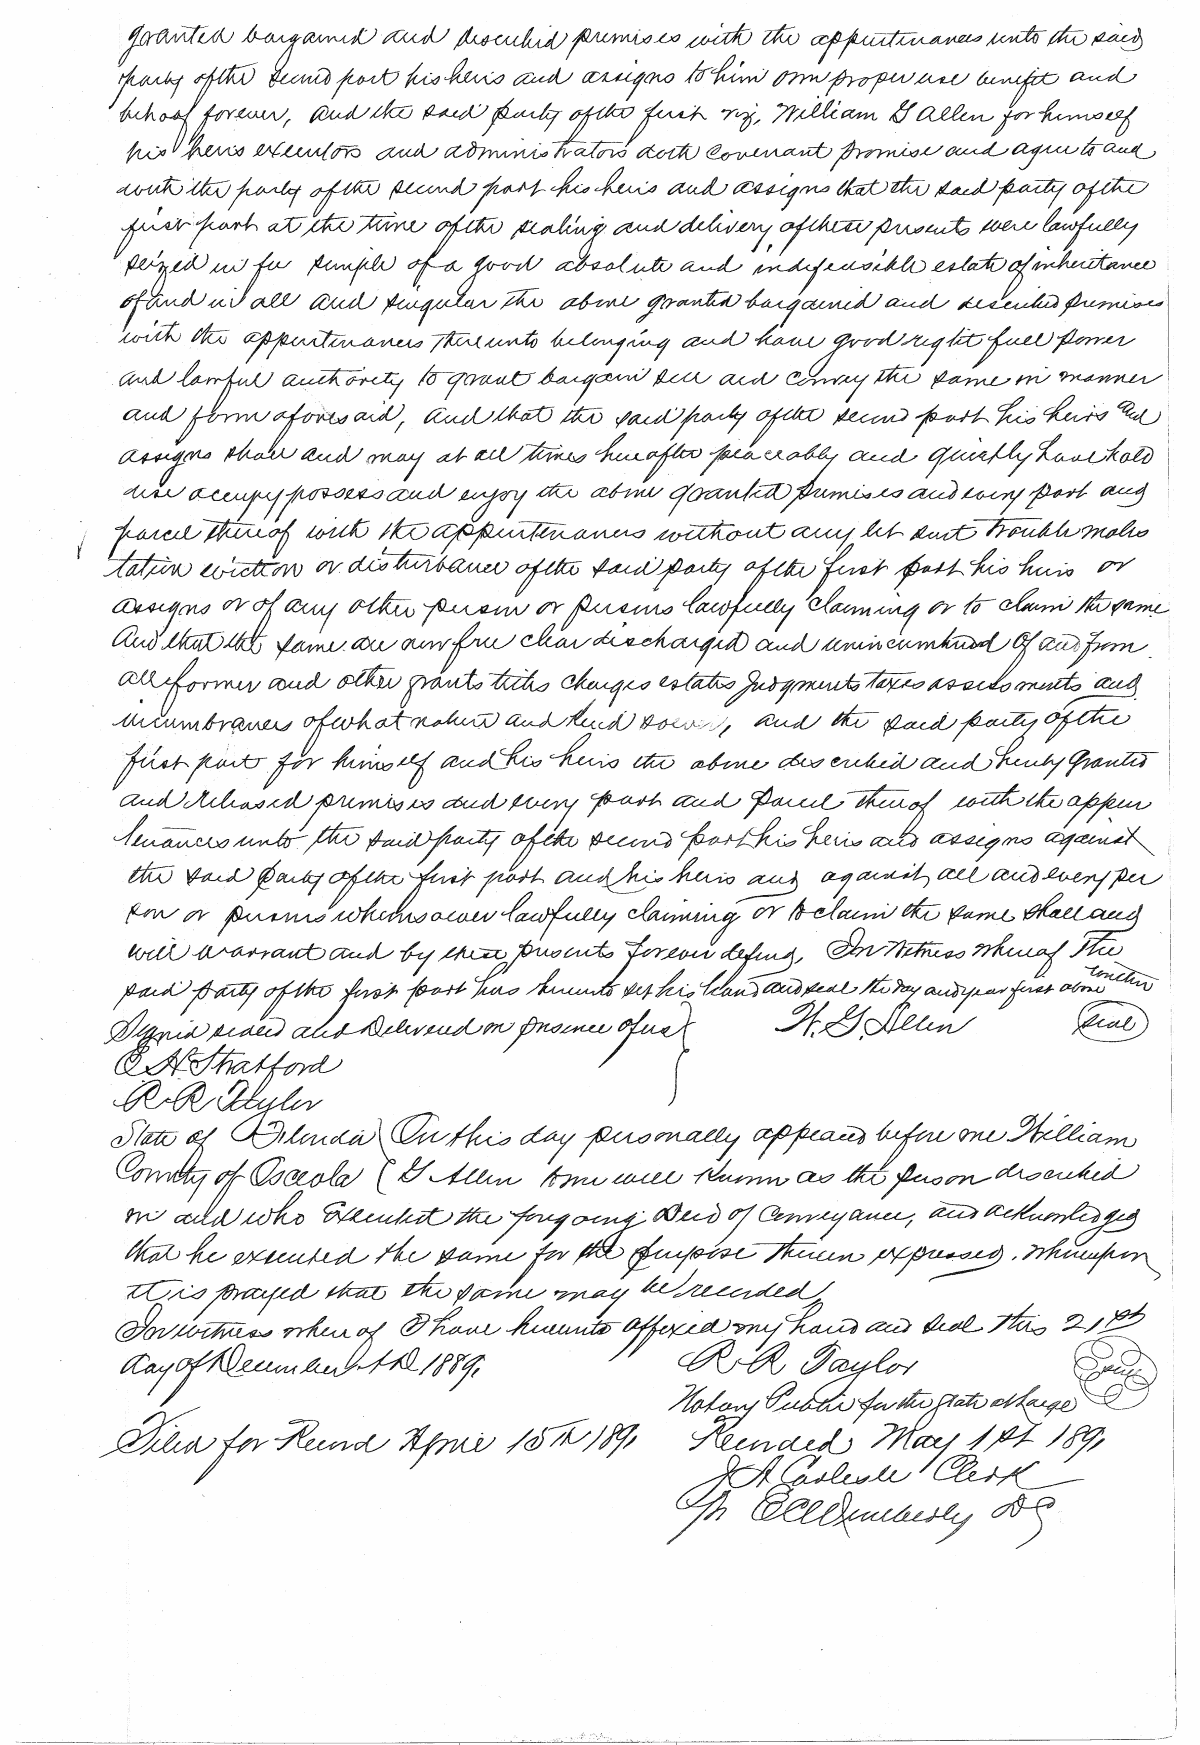 granted bargained and described premises with the appurtenances unto the said
party of the second part his heirs and assigns to him own proper use benefit and
behoof forever, and the said party of the first viz, William G Allen for himself
his heirs executors and administrators doth covenant promise and agree to and
with the party of the second part his heirs and assigns that the said party of the
first part at the time of the sealing and delivery of these presents were lawfully
seized in fee simple of a good absolute and indefeasible estate of inheritance
of and in all and singular the above granted bargained and described premises
with the appurtenances thereunto belonging and have good right full power
and lawful authority to grant bargain sell and convey the same in manner
and form aforesaid, and that the said party of the second part his heirs and
assigns shall and may at all times hereafter peaceably and quietly have hold
use occupy possess and enjoy the above granted premises and every part and
parcel thereof with the appurtenances without any let suit trouble moles
tation eviction or disturbance of the said party of the first part his heirs or
assigns or of any other person or persons lawfully claiming or to claim the same
And that the same are now free clear discharged and unincumbered of and from
all former and other grants titles charges estates judgments taxes assessments and
incumbrances of what nature and kind soever, and the said party of the
first part for himself and his heirs the above described and hereby granted
and released premises and every part and parcel thereof with the appur
tenances unto the said party of the second part his heirs and assigns against
the said party of the first part and his heirs and against all and every per
son or persons whomsoever lawfully claiming or to claim the same shall and
will warrant and by these presents forever defend, In Witness whereof the
said party of the first part has hereunto set his hand and seal the day and year first above written
Signed sealed and delivered in presence of us W. G. Allen seal
C H Stratford
R R Taylor
State of Florida On this day personally appeared before me William
County of Osceola G Allen to me well known as the person described
in and who executed the foregoing Deed of Conveyance, and acknowledged
that he executed the same for the purpose therein expressed. Whereupon
it is prayed that the same may be recorded,
In witness whereof I have hereunto affixed my hand and seal this 21st
day of December A D. 1889. R. R Taylor seal
Notary Public for the State at Large
Filed for Record April 15th 1891 Recorded May 1st 1891
J A Carlisle Clerk
DC